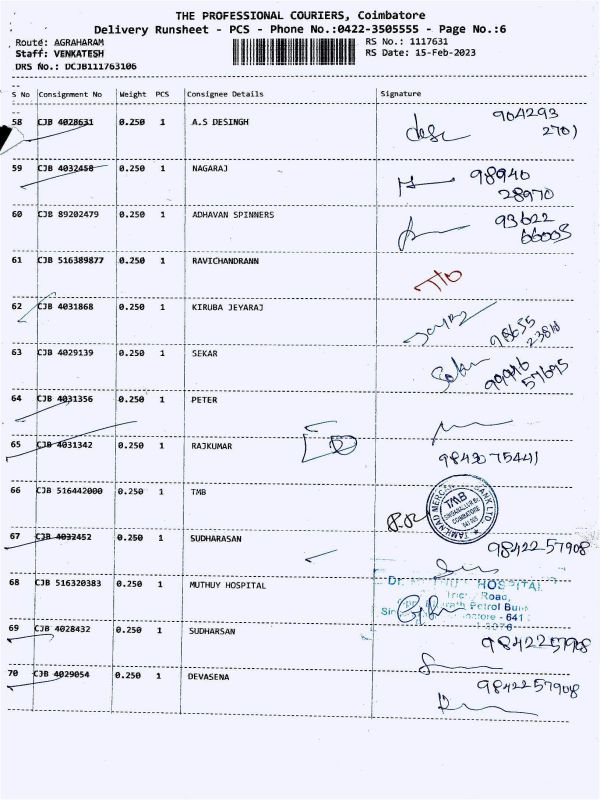 THE PROFESSIONAL COURIERS, Coimbatore
Delivery Runsheet - PCS - Phone No.:0422-3505555 - Page No.:6
Route: AGRAHARAM RS No.: 1117631
Staff: VENKATESH RS Date: 15-Feb-2023
DRS No.: DCJB111763106
S No Consignment No Weight PCS Consignee Details Signature
58 CJB 4028631 0.250 1 A.S DESINGH 904293
2701
59 CJB 4032458 0.250 1 NAGARAJ 98940
28970
60 CJB 89202479 0.250 1 ADHAVAN SPINNERS 93622
66005
61 CJB 516389877 0.250 1 RAVICHANDRANN
62 CJB 4031868 0.250 1 KIRUBA JEYARAJ 98655
63 CJB 4029139 0.250 1 SEKAR Sekar 99946
57695
64 CJB 4031356 0.250 1 PETER
65 CJB 4031342 0.250 1 RAJKUMAR 9842075441
66 CJB 516442000 0.250 1 TMB TAMILNAD MERCANTILE BANK LTD. TMB COIMBATORE
67 CJB 4032452 0.250 1 SUDHARASAN 9842257908
68 CJB 516320383 0.250 1 MUTHUY HOSPITAL Dr. HOSPITAL
Trichy Road,
Petrol Bunk
- 641
69 CJB 4028432 0.250 1 SUDHARSAN 9842257908
70 CJB 4029054 0.250 1 DEVASENA 9842257908